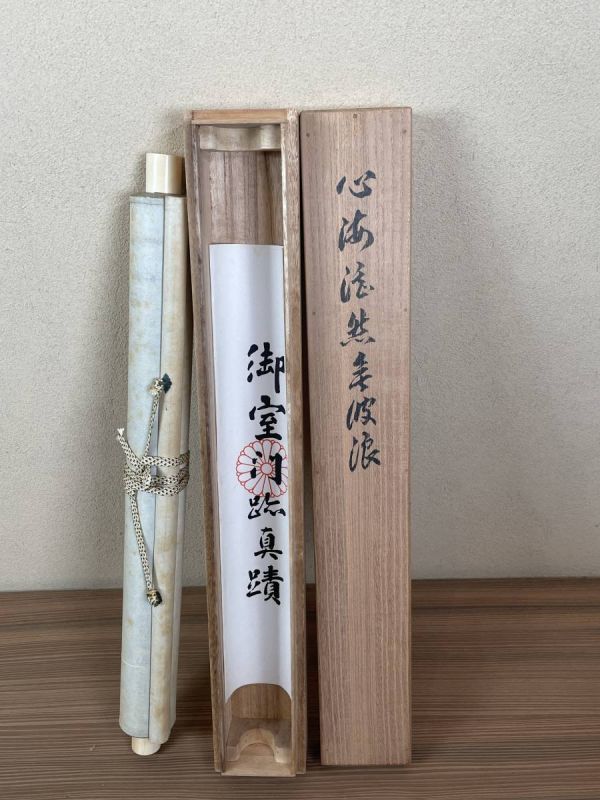 心海湛然無波浪
御室門跡真蹟